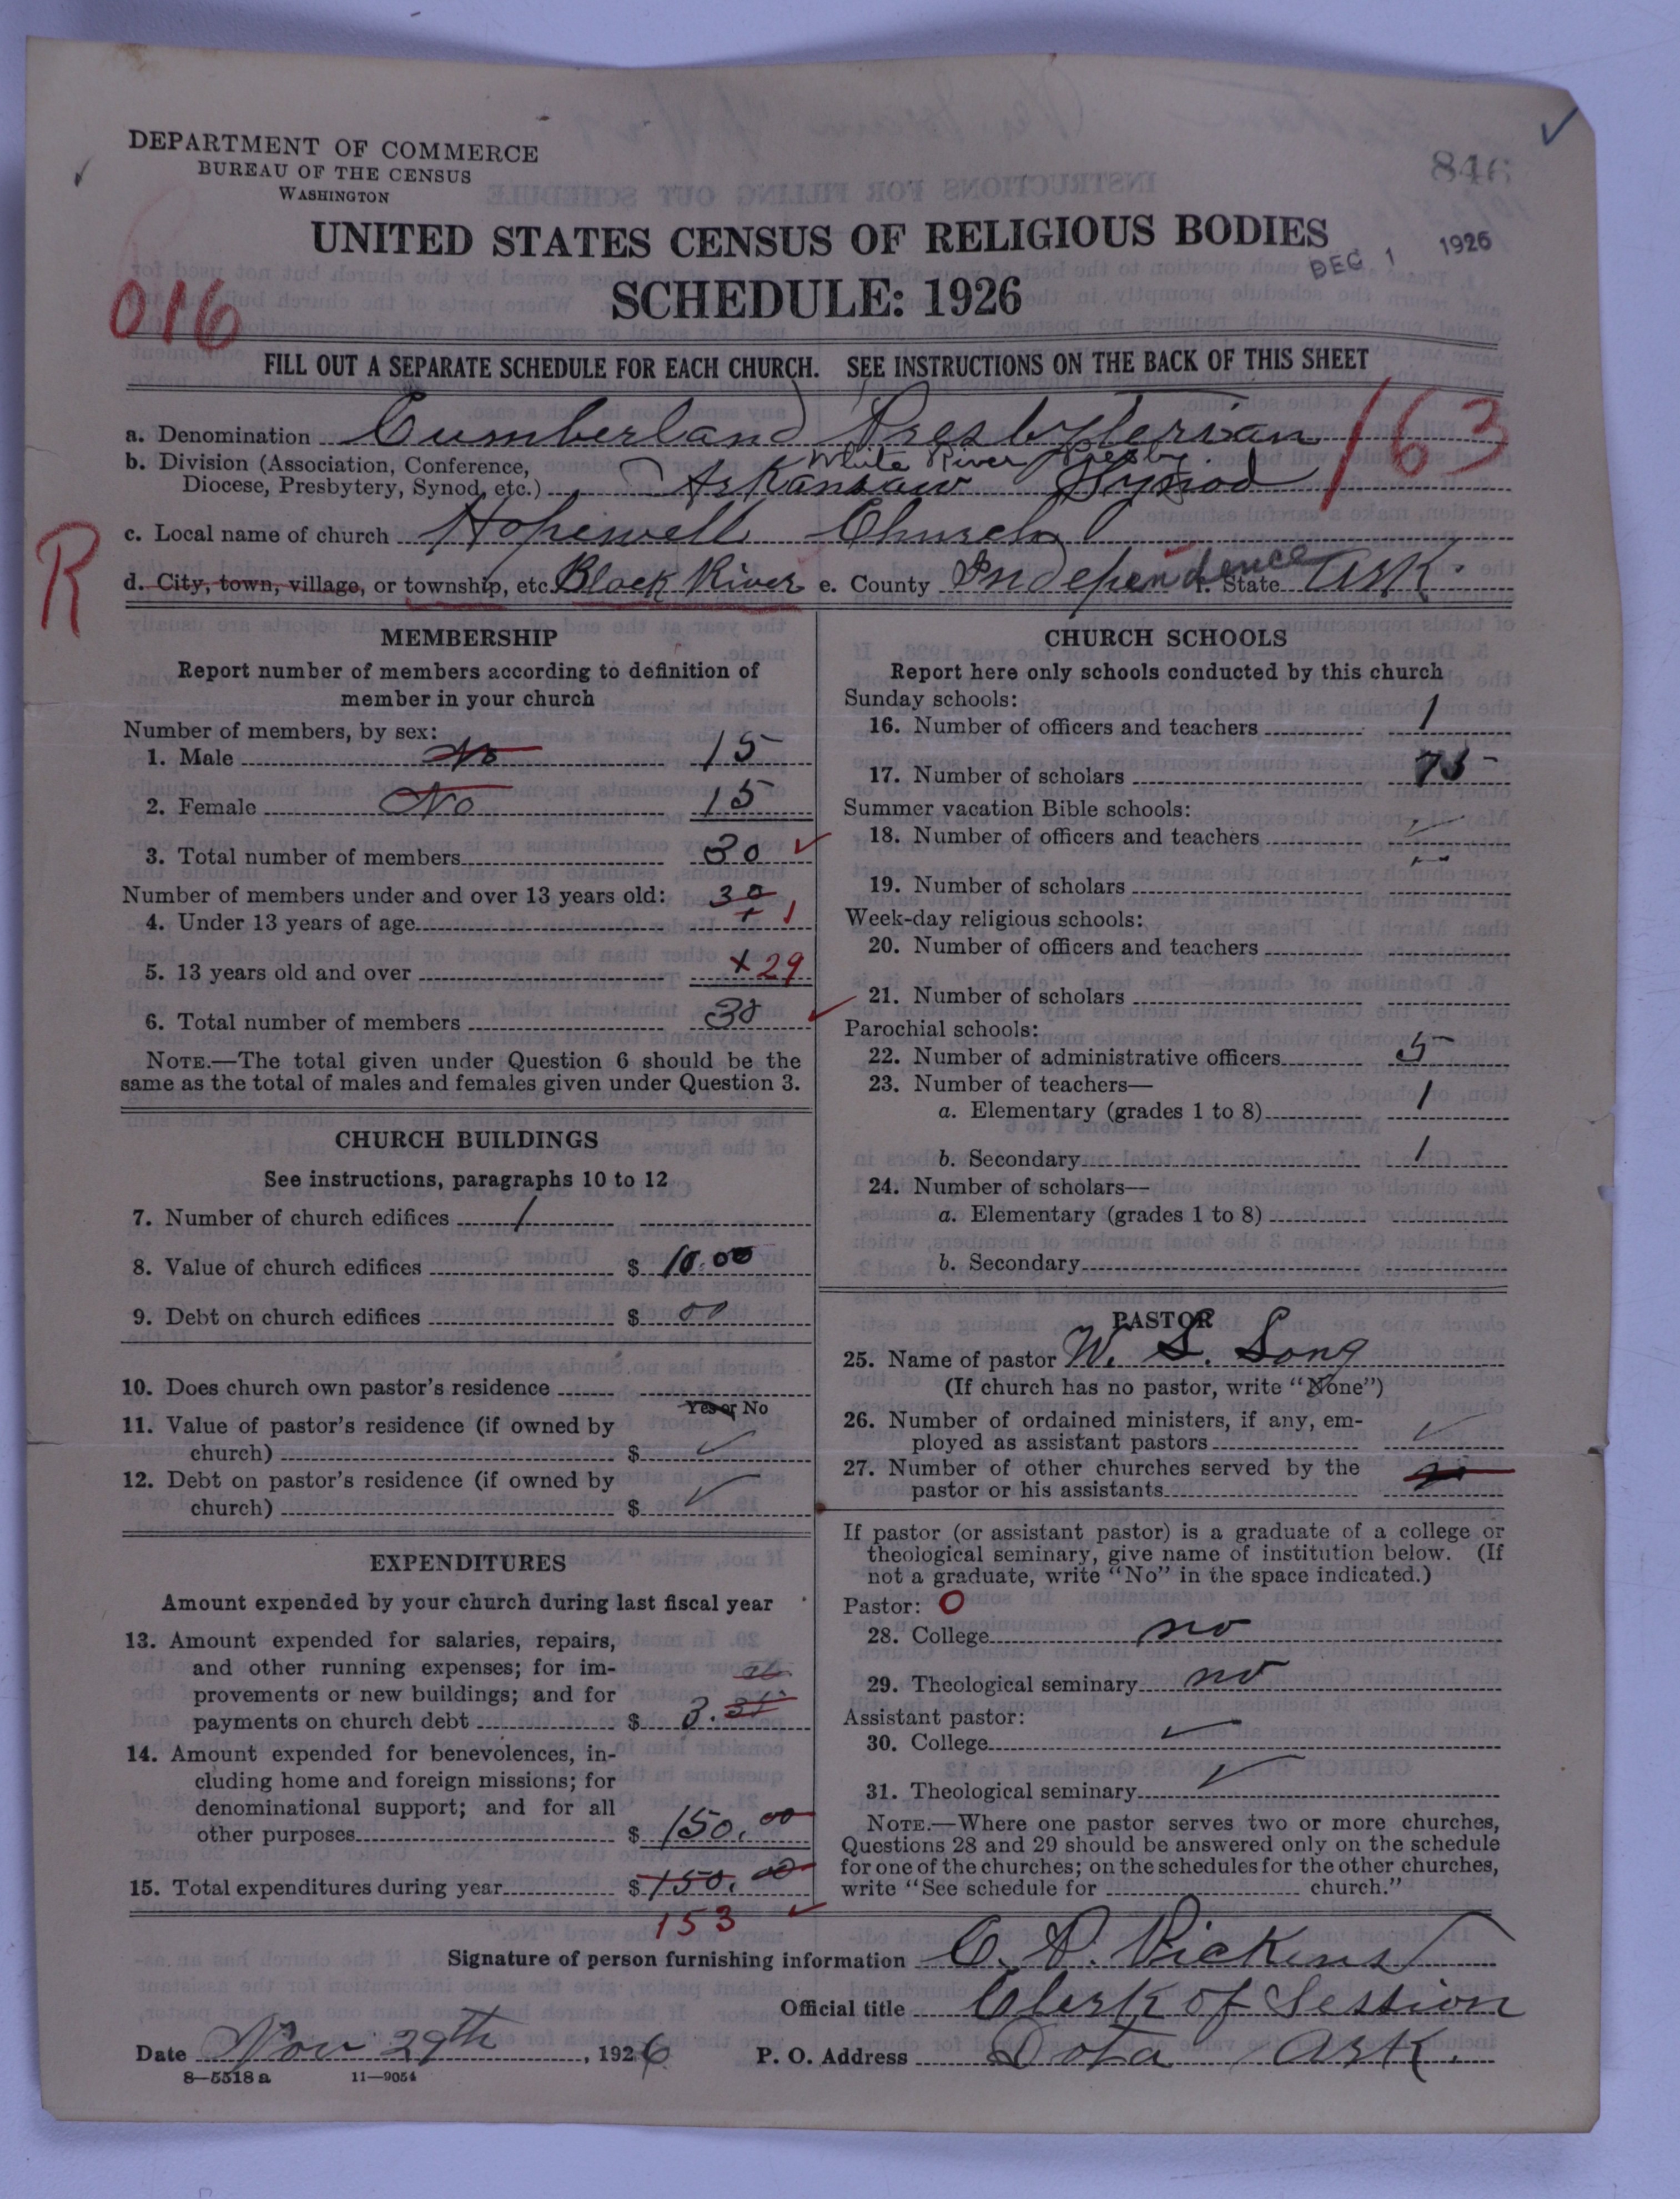 DEPARTMENT OF COMMERCE
BUREAU OF THE CENSUS
WASHINGTON
846
UNITED STATES CENSUS OF RELIGIOUS BODIES
DEC 1 1926
SCHEDULE: 1926
016
FILL OUT A SEPARATE SCHEDULE FOR EACH CHURCH. SEE INSTRUCTIONS ON THE BACK OF THIS SHEET
a. Denomination Cumberland Presbyterian
163
b. Division (Association, Conference, White River Presby.
Diocese, Presbytery, Synod, etc.) Arkansaw Synod
c. Local name of church Hopewell Church
R
d. City, town, village, or township, etc. Black River e. County Independence f. State Ark.
MEMBERSHIP
Report number of members according to definition of
member in your church
Number of members, by sex:
1. Male No 15
2. Female No 15
3. Total number of members 30
Number of members under and over 13 years old: 30
4. Under 13 years of age 1
5. 13 years old and over 29
6. Total number of members 30
NOTE.—The total given under Question 6 should be the
same as the total of males and females given under Question 3.
CHURCH BUILDINGS
See instructions, paragraphs 10 to 12
7. Number of church edifices 1
8. Value of church edifices $ 10.00
9. Debt on church edifices $ 00
10. Does church own pastor's residence
Yes or No
11. Value of pastor's residence (if owned by
church) $
12. Debt on pastor's residence (if owned by
church) $
EXPENDITURES
Amount expended by your church during last fiscal year
13. Amount expended for salaries, repairs,
and other running expenses; for im-
provements or new buildings; and for
payments on church debt $ 3.
14. Amount expended for benevolences, in-
cluding home and foreign missions; for
denominational support; and for all
other purposes $ 150.00
15. Total expenditures during year $ 150.00
153
CHURCH SCHOOLS
Report here only schools conducted by this church
Sunday schools:
16. Number of officers and teachers 1
17. Number of scholars
Summer vacation Bible schools:
18. Number of officers and teachers
19. Number of scholars
Week-day religious schools:
20. Number of officers and teachers
21. Number of scholars
Parochial schools:
22. Number of administrative officers 5
23. Number of teachers—
a. Elementary (grades 1 to 8) 1
b. Secondary 1
24. Number of scholars—
a. Elementary (grades 1 to 8)
b. Secondary
PASTOR
25. Name of pastor W. S. Song
(If church has no pastor, write "None")
26. Number of ordained ministers, if any, em-
ployed as assistant pastors
27. Number of other churches served by the
pastor or his assistants
If pastor (or assistant pastor) is a graduate of a college or
theological seminary, give name of institution below. (If
not a graduate, write "No" in the space indicated.)
Pastor: O
28. College no
29. Theological seminary no
Assistant pastor:
30. College
31. Theological seminary
NOTE.—Where one pastor serves two or more churches,
Questions 28 and 29 should be answered only on the schedule
for one of the churches; on the schedules for the other churches,
write "See schedule for church."
Signature of person furnishing information C. D. Pickens
Official title Clerk of Session
Date Nov 29th, 1926 P. O. Address Dota Ark.
8—5518a 11—9054